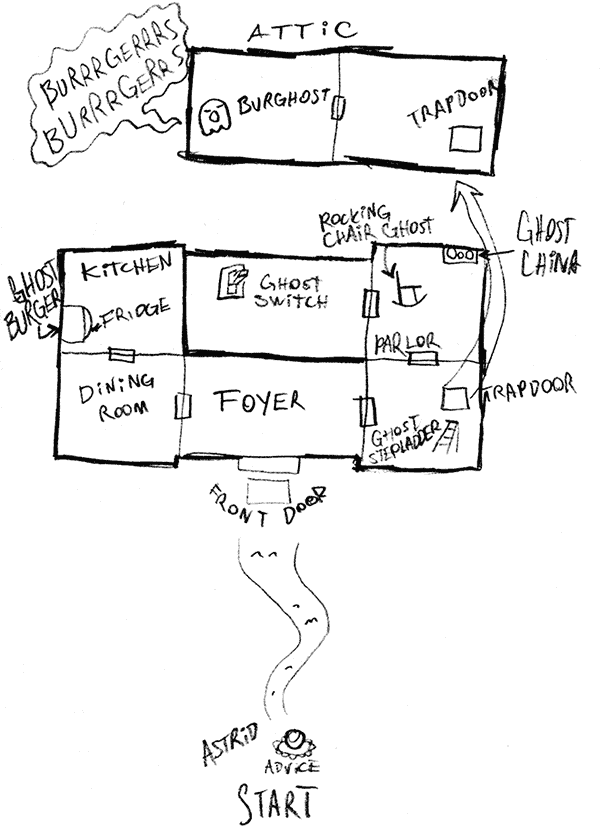 ATTIC
BURRRGERRRS
BURRRGERRS
BURGHOST
TRAPDOOR
ROCKING
CHAIR GHOST
GHOST
CHINA
KITCHEN
GHOST
SWITCH
GHOST
BURGER
FRIDGE
PARLOR
DINING
ROOM
FOYER
TRAPDOOR
GHOST
STEPLADDER
FRONT DOOR
ASTRID
ADVICE
START